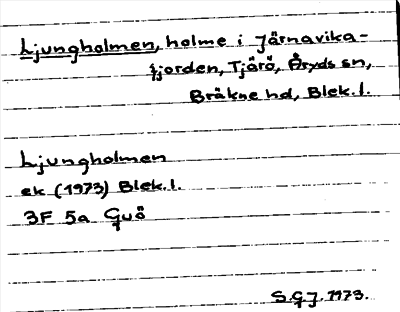 Ljungholmen, holme i Järnavika-
fjorden, Tjärö, Åryds sn,
Bräkne hd, Blek. l.
Ljungholmen
ek (1973) Blek. l.
3F 5a Guö
S.G.J. 1973.